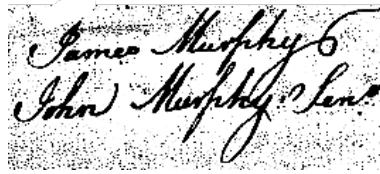 James Murphy
John Murphy Senr